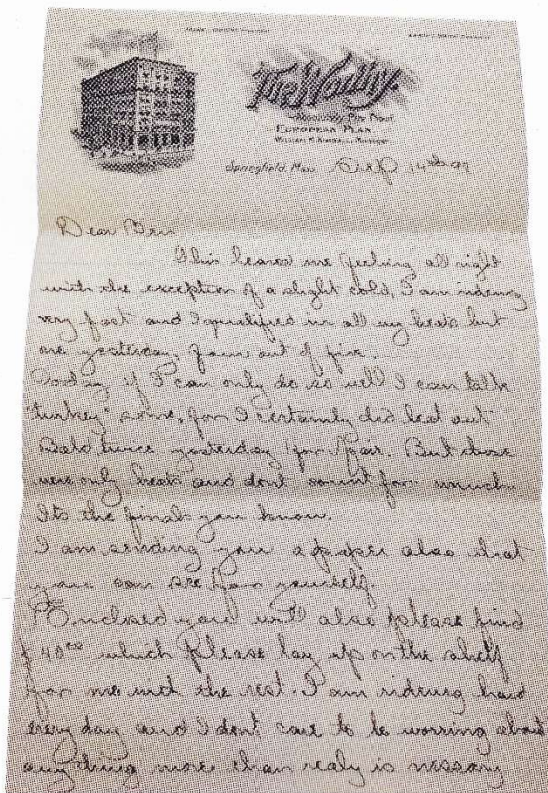 The Worthy.
Absolutely Fire Proof
EUROPEAN PLAN
Springfield, Mass. Sept 14th 97
Dear Ben
This leaves me feeling all right
with the exception of a slight cold, I am rideing
very fast and I qualified in all my heats but
one yesterday, four out of five.
Today if I can only do so well I can talk
"turkey" some, for I certainly did beat out
Bald twice yesterday for fair. But those
were only heats and dont count for much
Its the finals you know.
I am sending you a paper also that
you can see for yourself.
Enclosed you will also please find
$40.00 which please lay up on the shelf
for me with the rest. I am rideing hard
every day and I dont care to be worring about
anything more than realy is nessary